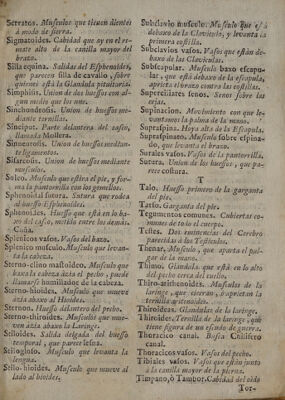 Serratos. Musculos que tienen dientes
à modo de sierra.
Sigmatoides. Cabidad que ay en el remate
alto de la canilla mayor del
brazo.
Silla equina. Salidas del Esphenoides,
que parecen silla de cavallo, sobre
quienes està la Glandula pituitaria.
Simphisis. Union de dos huessos con algun
medio que los une.
Sinchondrosis. Union de huessos mediante
ternillas.
Sinciput. Parte delantera del casco,
llamada Mollera.
Sinneurosis. Union de huessos mediante
ligamentos.
Sisarcosis. Union de huessos mediante
musculos.
Solco. Musculo que estira el pie, y forma
la pantorrilla con los gemellos.
Sphenoidal sutura. Sutura que rodea
al huesso Esphenoides.
Sphenoides. Huesso que està en lo baxo
del casco, metido entre los demàs.
Cuña.
Splenicos vasos. Vasos del bazo.
Splenico musculo. Musculo que levanta
la cabeza.
Sterno-clino mastoideo. Musculo que
baxa la cabeza àzia el pecho, puede
llamarse humilladór de la cabeza.
Sterno-hioides. Musculo que mueve
àzia abaxo al Hioides.
Sternon. Huesso delantero del pecho.
Sterno-thiroides. Musculos que mueven
àzia abaxo la Laringe.
Stiloides. Salida delgada del huesso
temporal, que parece lesna.
Stiloglosso. Musculo que levanta la
lengua.
Stilo-hioides. Musculo que mueve al
lado al hioides.
Subclavio musculo. Musculo que està
debaxo de la Clavicula, y levanta la
primera costilla.
Subclavios vasos. Vasos que estàn debaxo
de las Claviculas.
Subscapular. Musculo baxo escapular,
que està debaxo de la escapula,
aprieta el brazo contra las costillas.
Superciliares senos. Senos sobre las
cejas.
Supinacion. Movimiento con que levantamos
la palma de la mano.
Supraspina. Hoya alta de la Escapula.
Supraspinato. Musculo sobre espinado,
que levanta el brazo.
Surales vasos. Vasos de la pantorrilla.
Sutura. Union de los huessos, que parece
costura.
T
Talo. Huesso primero de la garganta
del pie.
Tarso. Garganta del pie.
Tegumentos comunes. Cubiertas comunes
de todo el cuerpo.
Testes. Dos eminencias del Cerebro
parecidas à los Testiculos.
Thenar. Musculo, que aparta el pulgar
de la mano.
Thimo. Glandula que està en lo alto
del pecho cerca del cuello.
Thiro-arithenoides. Musculos de la
laringe, que cierran, ò aprietan la
ternilla aritenoides.
Thiroideas. Glandulas de la laringe.
Thiroides. Ternilla de la laringe, que
tiene figura de un escudo de guerra.
Thoracico canal. Busca Chilifero
canal.
Thoracicos vasos. Vasos del pecho.
Tibiales vasos. Vasos que estàn junto
à la canilla mayor de la pierna.
Timpano, ò Tambor. Cabidad del oìdo
Tor-